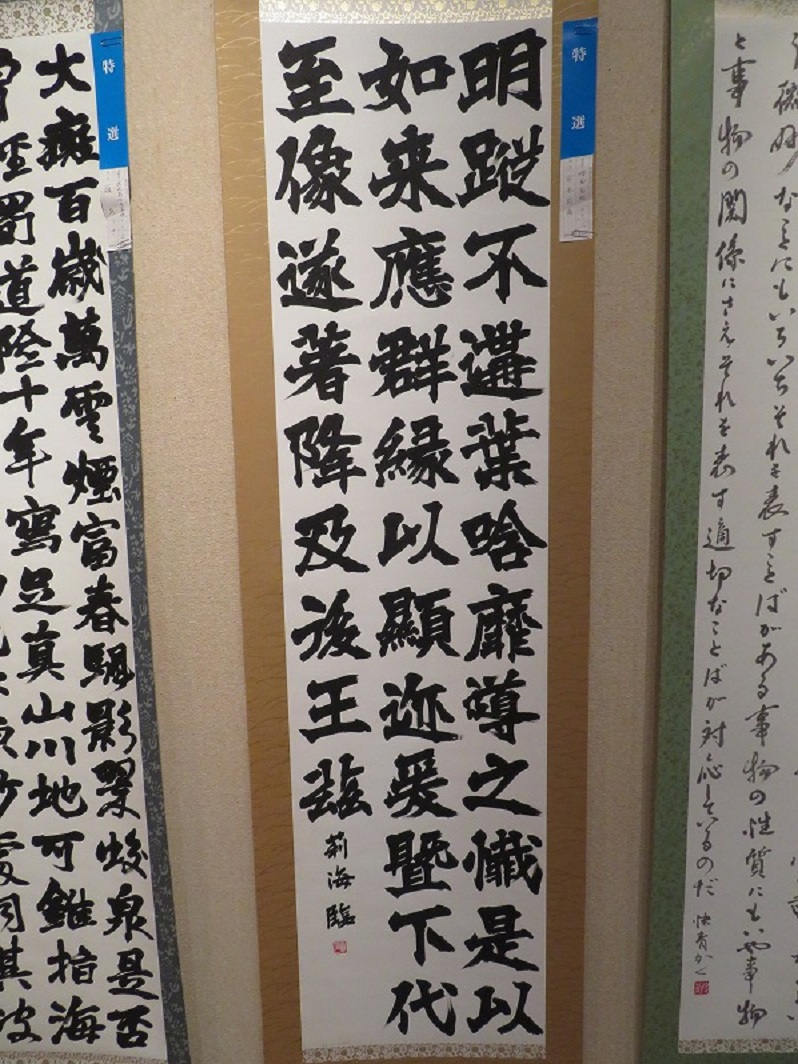 明蹤不遘葉唅靡導之懴是以
如来應群縁以顯迹爰曁下代
至像遂著降及後王茲
莉海臨
特選
特選
大癡百歳萬雲煙富春飄影翠蛟泉是否
曽経蜀道險十年寫足真山川地可錐指海
微妙なことにもいちいちそれを表すことばがある事物の性質にもいや事物
と事物の関係にさえそれを表す適切なことばが対応しているのだ